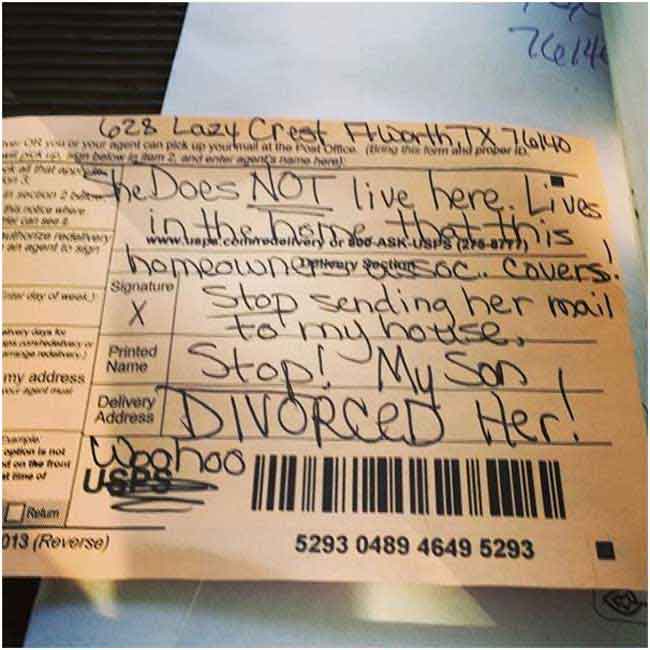 7614
628 Lazy Crest Ft Worth, TX 76140
OR you or your agent can pick up your mail at the Post Office. (Bring this form and proper ID.
will pick up, sign below in item 2, and enter agent's name here):
She Does NOT live here. Lives
in section 2 below
this notice where
in the home that this
www.usps.com/redelivery or 800-ASK-USPS (275-8777)
authorize redelivery
an agent to sign
homeowners assoc. covers!
Delivery Section
day of week.)
Signature
X
Stop sending her mail
to my house.
Printed
Name
Stop! My Son
my address
Delivery
Address
DIVORCED Her!
option is not
on the front
time of
Woohoo
USPS
Return
013 (Reverse)
5293 0489 4649 5293